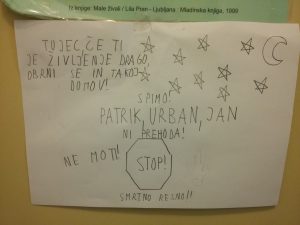 Iz knjige: Male živali / Lila Prap - Ljubljana: Mladinska knjiga, 1999
TOJEC, ČE TI
JE ŽIVLJENJE DRAGO,
OBRNI SE IN TAKOJ
DOMOV!
SPIMO!
PATRIK, URBAN, JAN
NI PREHODA!
NE MOTI!
STOP!
SMRTNO RESNO!!